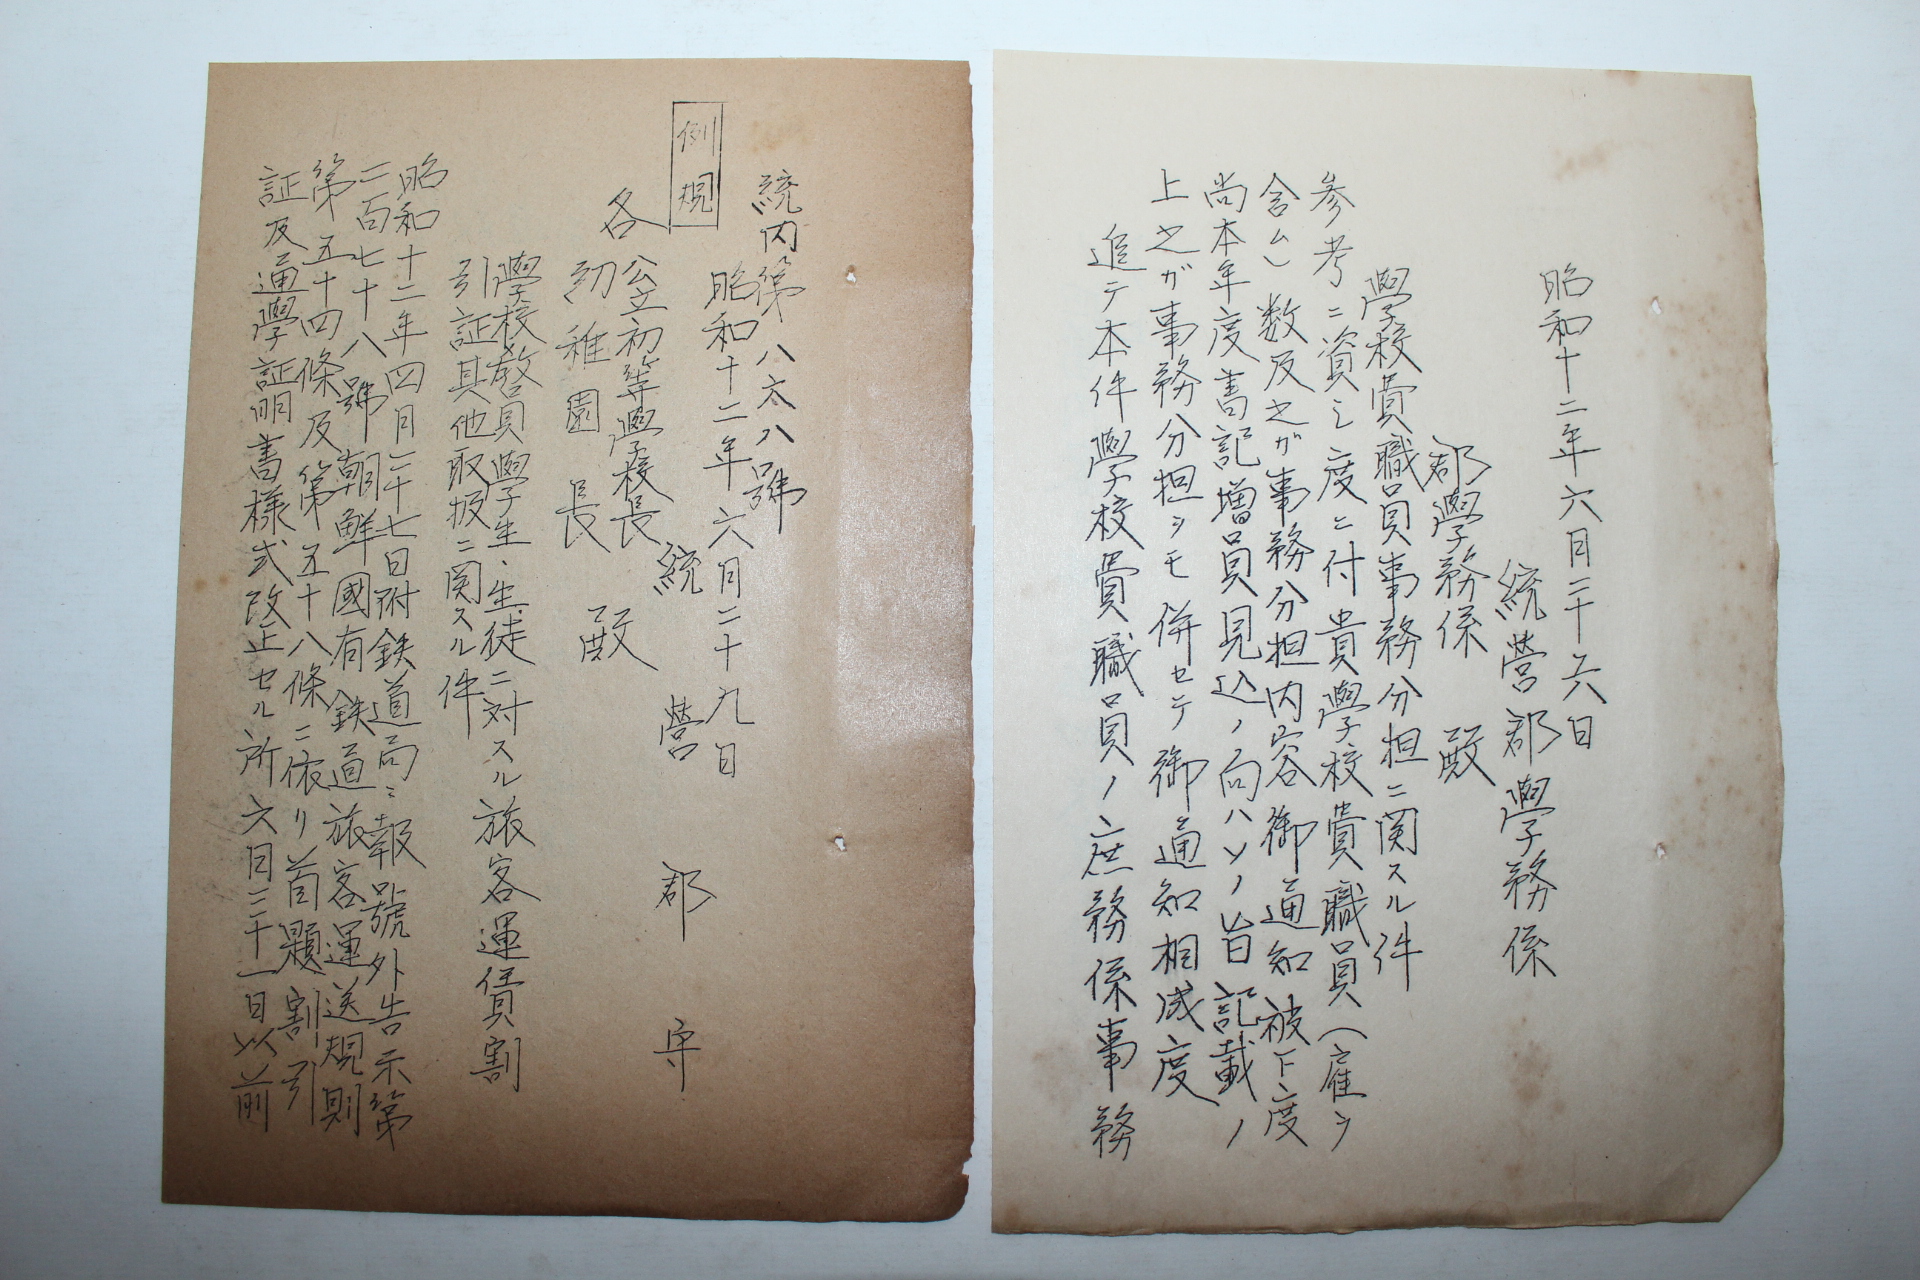 昭和十二年六月二十六日
統營郡學務係
郡學務係 殿
學校費職員事務分担ニ関スル件
参考ニ資シ度ニ付貴學校費職員(雇ヲ
含ム)数及之ガ事務分担内容御通知被下度
尚本年度書記増員見込ノ向ハソノ旨記載ノ
上之ガ事務分担ヲモ併セテ御通知相成度
追テ本件學校費職員ノ庶務係事務
統内第八六八號
昭和十二年六月二十九日
例規
統營郡守
各公立初等學校長
幼稚園長 殿
學校敎員學生、生徒ニ対スル旅客運賃割
引証其他取扱ニ関スル件
昭和十二年四月二十七日附鉄道局ニ報號外告示第
二百七十八號朝鮮國有鉄道旅客運送規則
第五十四條及第五十八條ニ依リ首題割引
証及通學証明書様式改正セル所六月三十一日以前